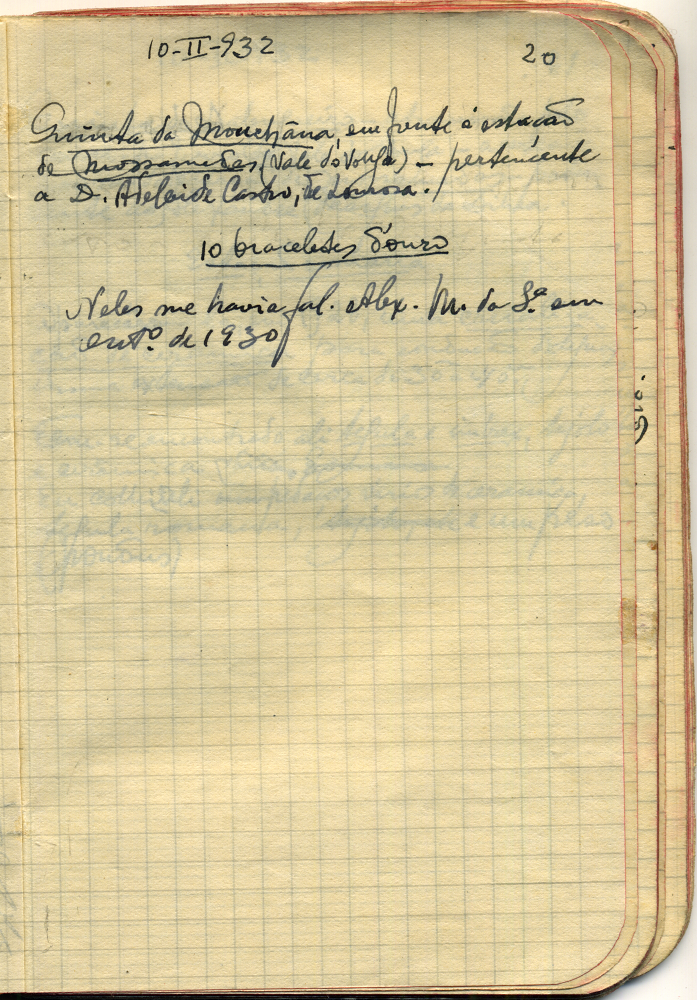 10-II-932
20
Quinta da Mouchãna, em frente á estação
de Mossamedes (Vale do Vouga) – pertencente
a D. Adelaide Castro, de Lourosa.
10 braceletes d'ouro
Neles me havia fal. Alex. M. da S.ª em
out.º de 1930